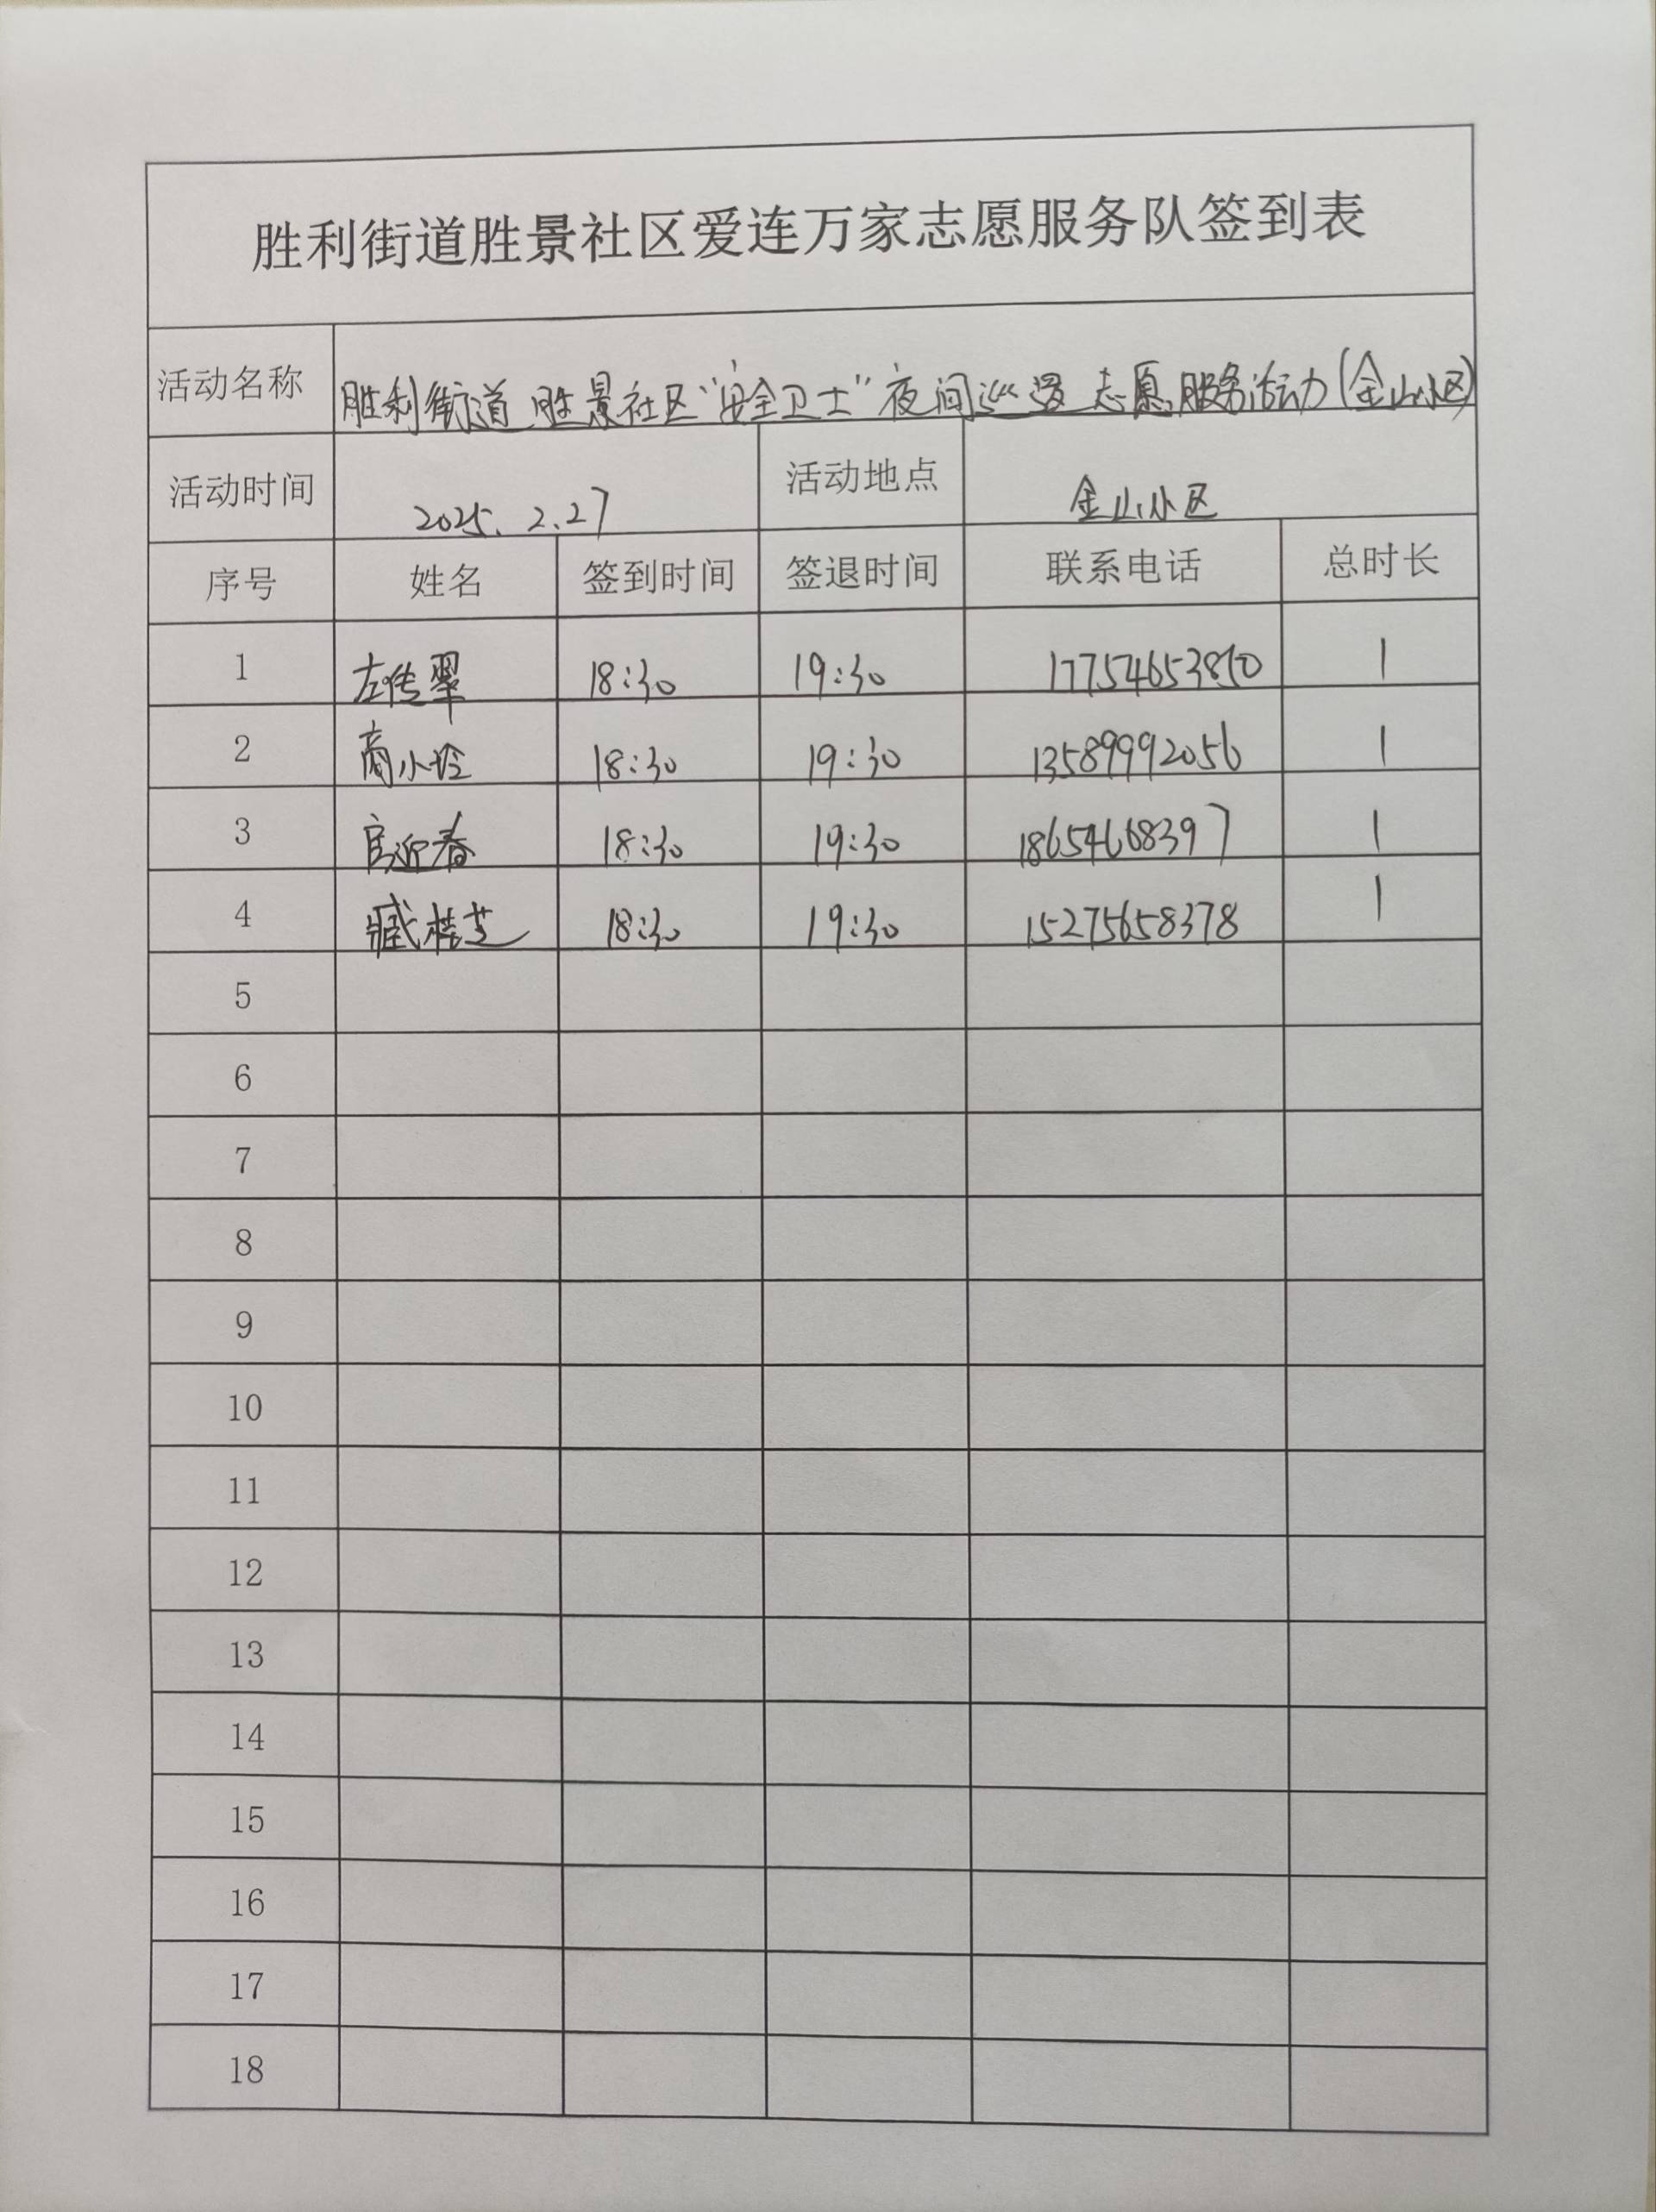 胜利街道胜景社区爱连万家志愿服务队签到表
活动名称 胜利街道胜景社区“安全卫士”夜间巡逻志愿服务活动(金山小区)
活动时间 2025.2.27 活动地点 金山小区
序号 姓名 签到时间 签退时间 联系电话 总时长
1 左传翠 18:30 19:30 17754653850 1
2 商小玲 18:30 19:30 13589992056 1
3 官迎春 18:30 19:30 18654668397 1
4 臧桂芝 18:30 19:30 15275658378 1
5
6
7
8
9
10
11
12
13
14
15
16
17
18